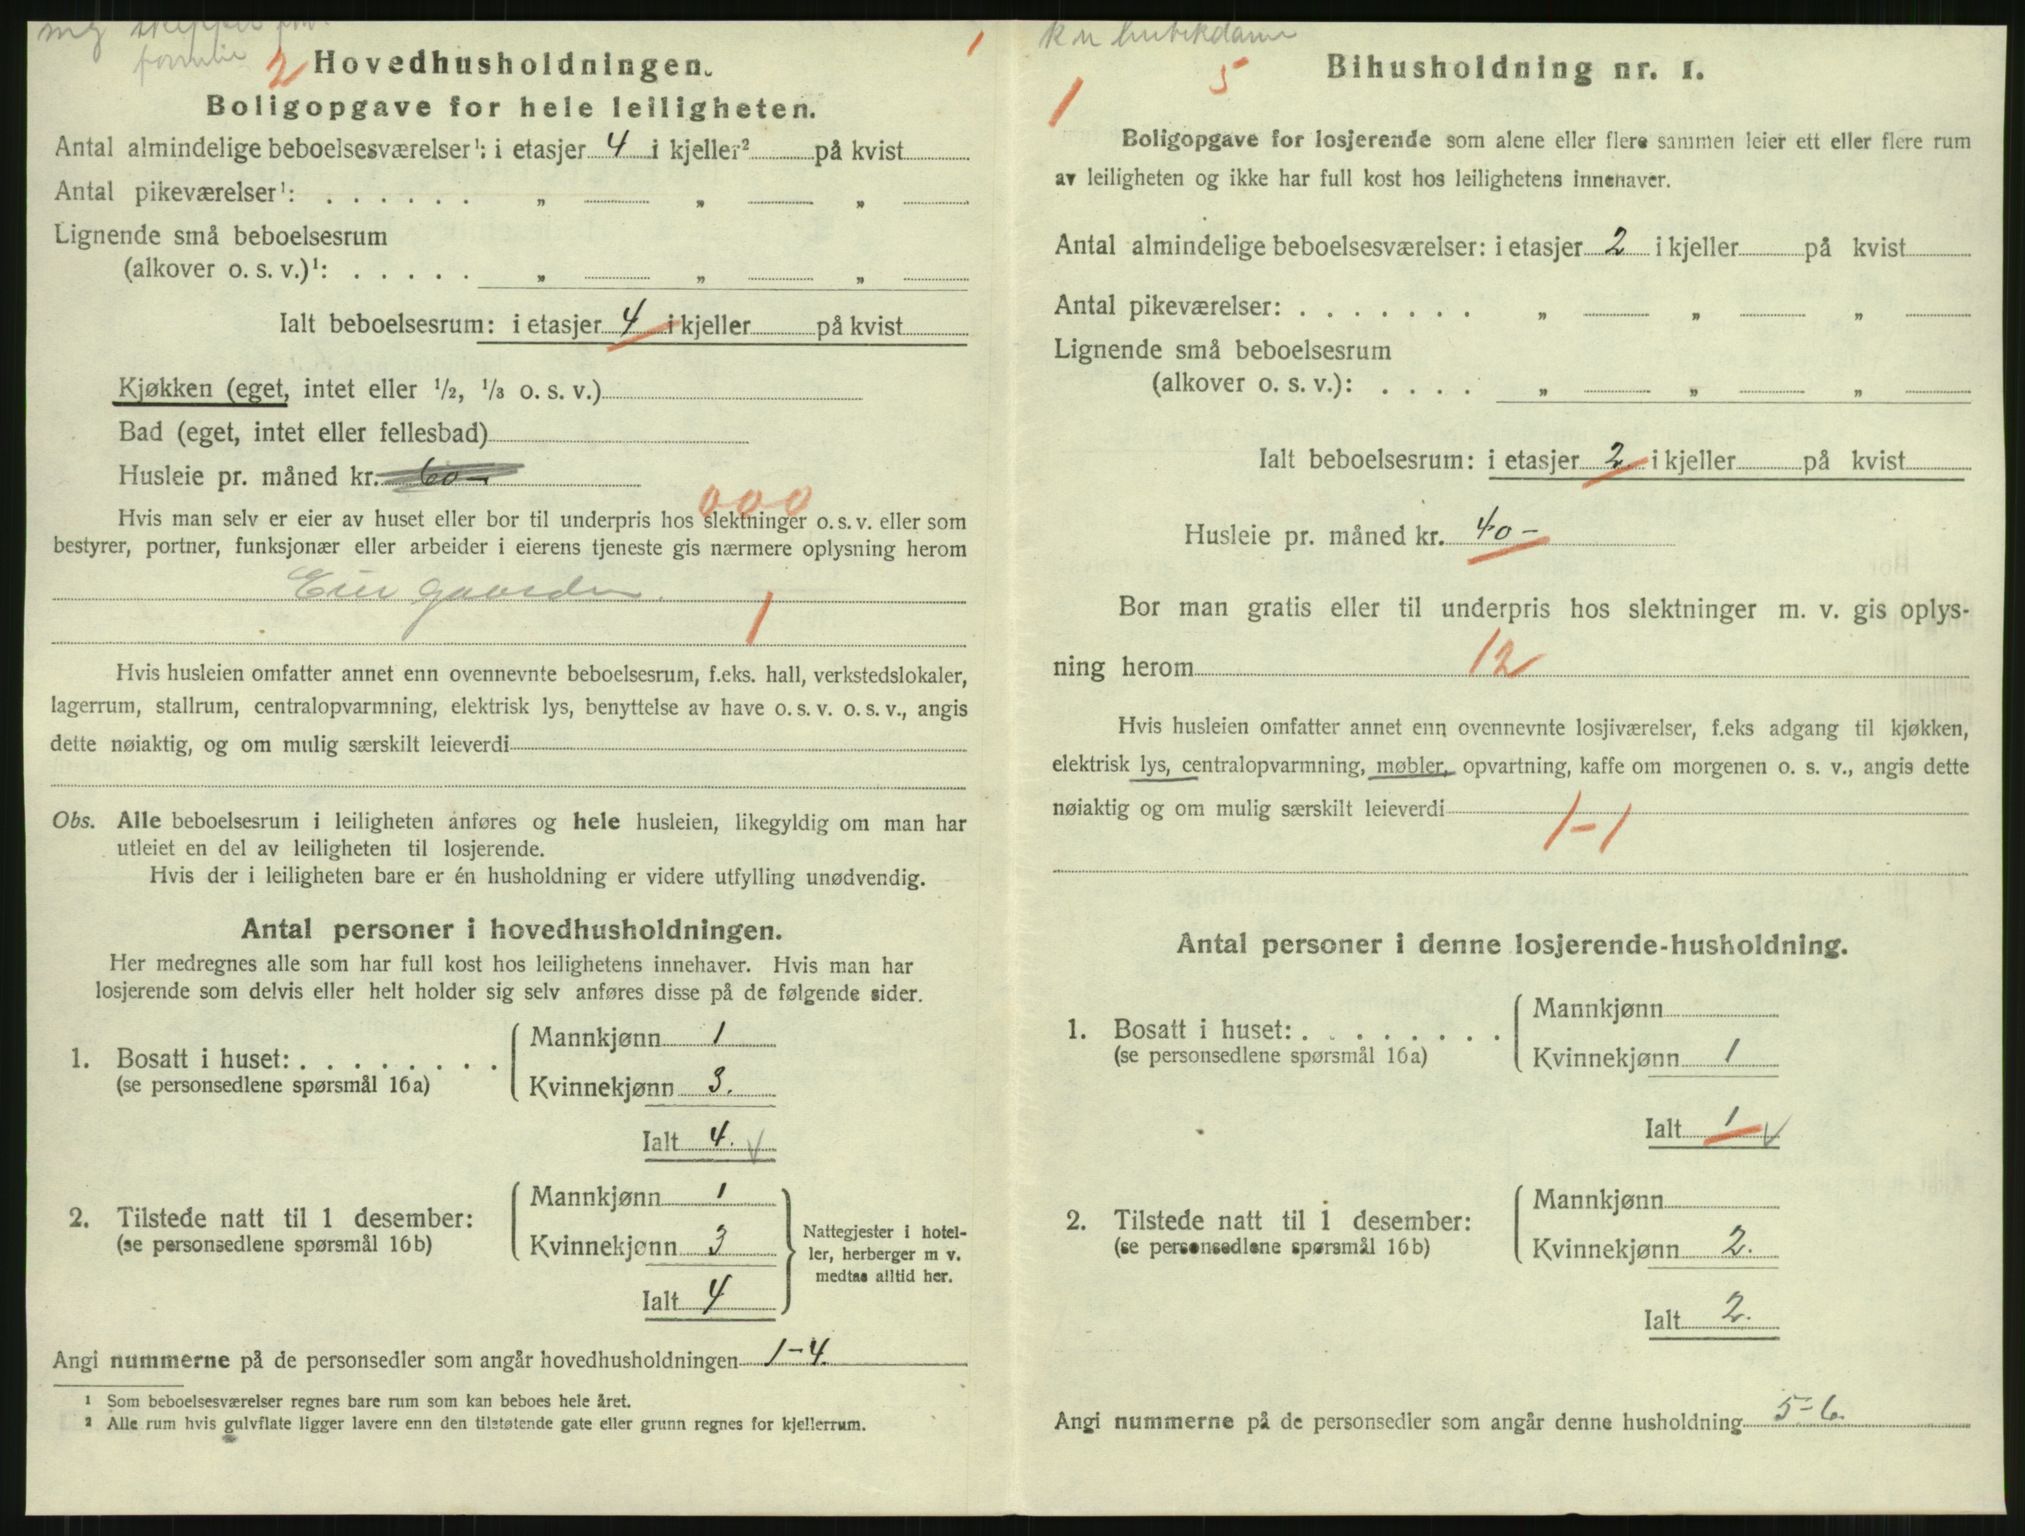 2 Hovedhusholdningen. 1
Boligopgave for hele leiligheten.
Antal almindelige beboelsesværelser¹: i etasjer 4 i kjeller² på kvist
Antal pikeværelser¹: . . . . . . „ „ „
Lignende små beboelsesrum
(alkover o. s. v.)¹: . . . . . „ „ „
Ialt beboelsesrum: i etasjer 4 i kjeller på kvist
Kjøkken (eget, intet eller ¹/₂, ¹/₃ o. s. v.)
Bad (eget, intet eller fellesbad)
Husleie pr. måned kr. 60-
000
Hvis man selv er eier av huset eller bor til underpris hos slektninger o. s. v. eller som
bestyrer, portner, funksjonær eller arbeider i eierens tjeneste gis nærmere oplysning herom
Eier gaarden.
1
Hvis husleien omfatter annet enn ovennevnte beboelsesrum, f.eks. hall, verkstedslokaler,
lagerrum, stallrum, centralopvarmning, elektrisk lys, benyttelse av have o. s. v. o. s. v., angis
dette nøiaktig, og om mulig særskilt leieverdi
Obs. Alle beboelsesrum i leiligheten anføres og hele husleien, likegyldig om man har
utleiet en del av leiligheten til losjerende.
Hvis der i leiligheten bare er én husholdning er videre utfylling unødvendig.
Antal personer i hovedhusholdningen.
Her medregnes alle som har full kost hos leilighetens innehaver. Hvis man har
losjerende som delvis eller helt holder sig selv anføres disse på de følgende sider.
Mannkjønn 1
1. Bosatt i huset: . . . . . . . .
(se personsedlene spørsmål 16a)
Kvinnekjønn 3.
Ialt 4. √
Mannkjønn 1
2. Tilstede natt til 1 desember:
(se personsedlene spørsmål 16b)
Kvinnekjønn 3
Ialt 4
Nattegjester i hotel-
ler, herberger m v.
medtas alltid her.
Angi nummerne på de personsedler som angår hovedhusholdningen 1-4.
¹ Som beboelsesværelser regnes bare rum som kan beboes hele året.
² Alle rum hvis gulvflate ligger lavere enn den tilstøtende gate eller grunn regnes for kjellerrum.
1 5 Bihusholdning nr. 1.
Boligopgave for losjerende som alene eller flere sammen leier ett eller flere rum
av leiligheten og ikke har full kost hos leilighetens innehaver.
Antal almindelige beboelsesværelser: i etasjer 2 i kjeller på kvist
Antal pikeværelser: . . . . . . . „ „ „
Lignende små beboelsesrum
(alkover o. s. v.): . . . . „ „ „
Ialt beboelsesrum: i etasjer 2 i kjeller på kvist
Husleie pr. måned kr. 40-
Bor man gratis eller til underpris hos slektninger m. v. gis oplys-
ning herom 12
Hvis husleien omfatter annet enn ovennevnte losjiværelser, f.eks adgang til kjøkken,
elektrisk lys, centralopvarmning, møbler, opvartning, kaffe om morgenen o. s. v., angis dette
nøiaktig og om mulig særskilt leieverdi
1-1
Antal personer i denne losjerende-husholdning.
Mannkjønn
1. Bosatt i huset: . . . . . . . .
(se personsedlene spørsmål 16a)
Kvinnekjønn 1
Ialt 1 √
Mannkjønn
2. Tilstede natt til 1 desember:
(se personsedlene spørsmål 16b)
Kvinnekjønn 2.
Ialt 2.
Angi nummerne på de personsedler som angår denne husholdning 5-6.